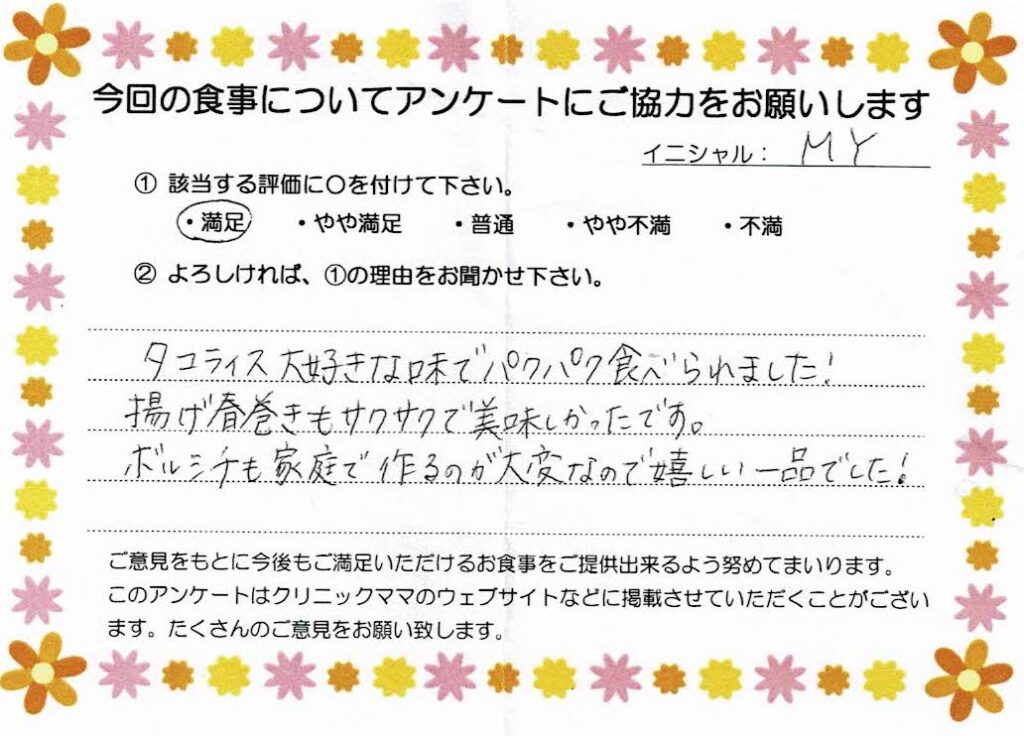 今回の食事についてアンケートにご協力をお願いします
イニシャル： MY
① 該当する評価に〇を付けて下さい。
・満足 ・やや満足 ・普通 ・やや不満 ・不満
② よろしければ、①の理由をお聞かせ下さい。
タコライス大好きな味でパクパク食べられました！
揚げ春巻きもサクサクで美味しかったです。
ボルシチも家庭で作るのが大変なので嬉しい一品でした！
ご意見をもとに今後もご満足いただけるお食事をご提供出来るよう努めてまいります。
このアンケートはクリニックママのウェブサイトなどに掲載させていただくことがござい
ます。たくさんのご意見をお願い致します。